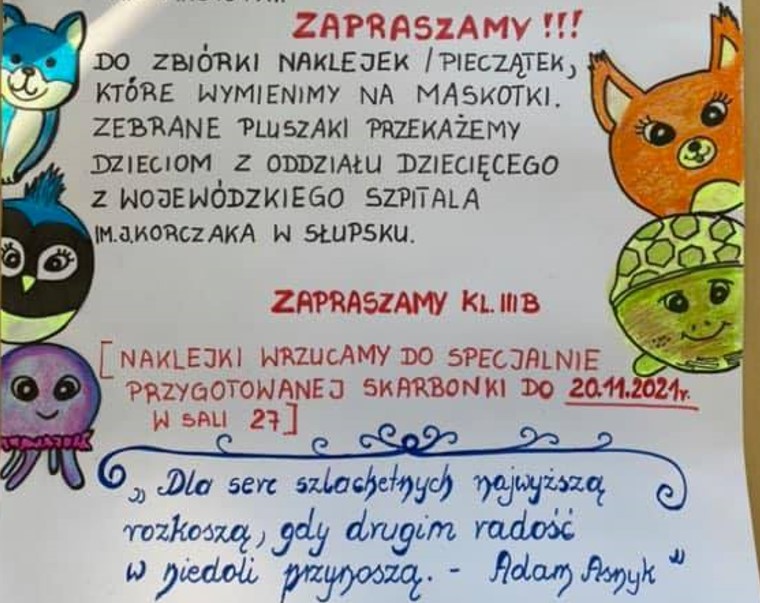 ZAPRASZAMY !!!
DO ZBIÓRKI NAKLEJEK / PIECZĄTEK,
KTÓRE WYMIENIMY NA MASKOTKI.
ZEBRANE PLUSZAKI PRZEKAŻEMY
DZIECIOM Z ODDZIAŁU DZIECIĘCEGO
Z WOJEWÓDZKIEGO SZPITALA
IM.J.KORCZAKA W SŁUPSKU.
ZAPRASZAMY KL. III B
[NAKLEJKI WRZUCAMY DO SPECJALNIE
PRZYGOTOWANEJ SKARBONKI DO 20.11.2021r.
W SALI 27]
„Dla serc szlachetnych najwyższą
rozkoszą, gdy drugim radość
w niedoli przynoszą. - Adam Asnyk"